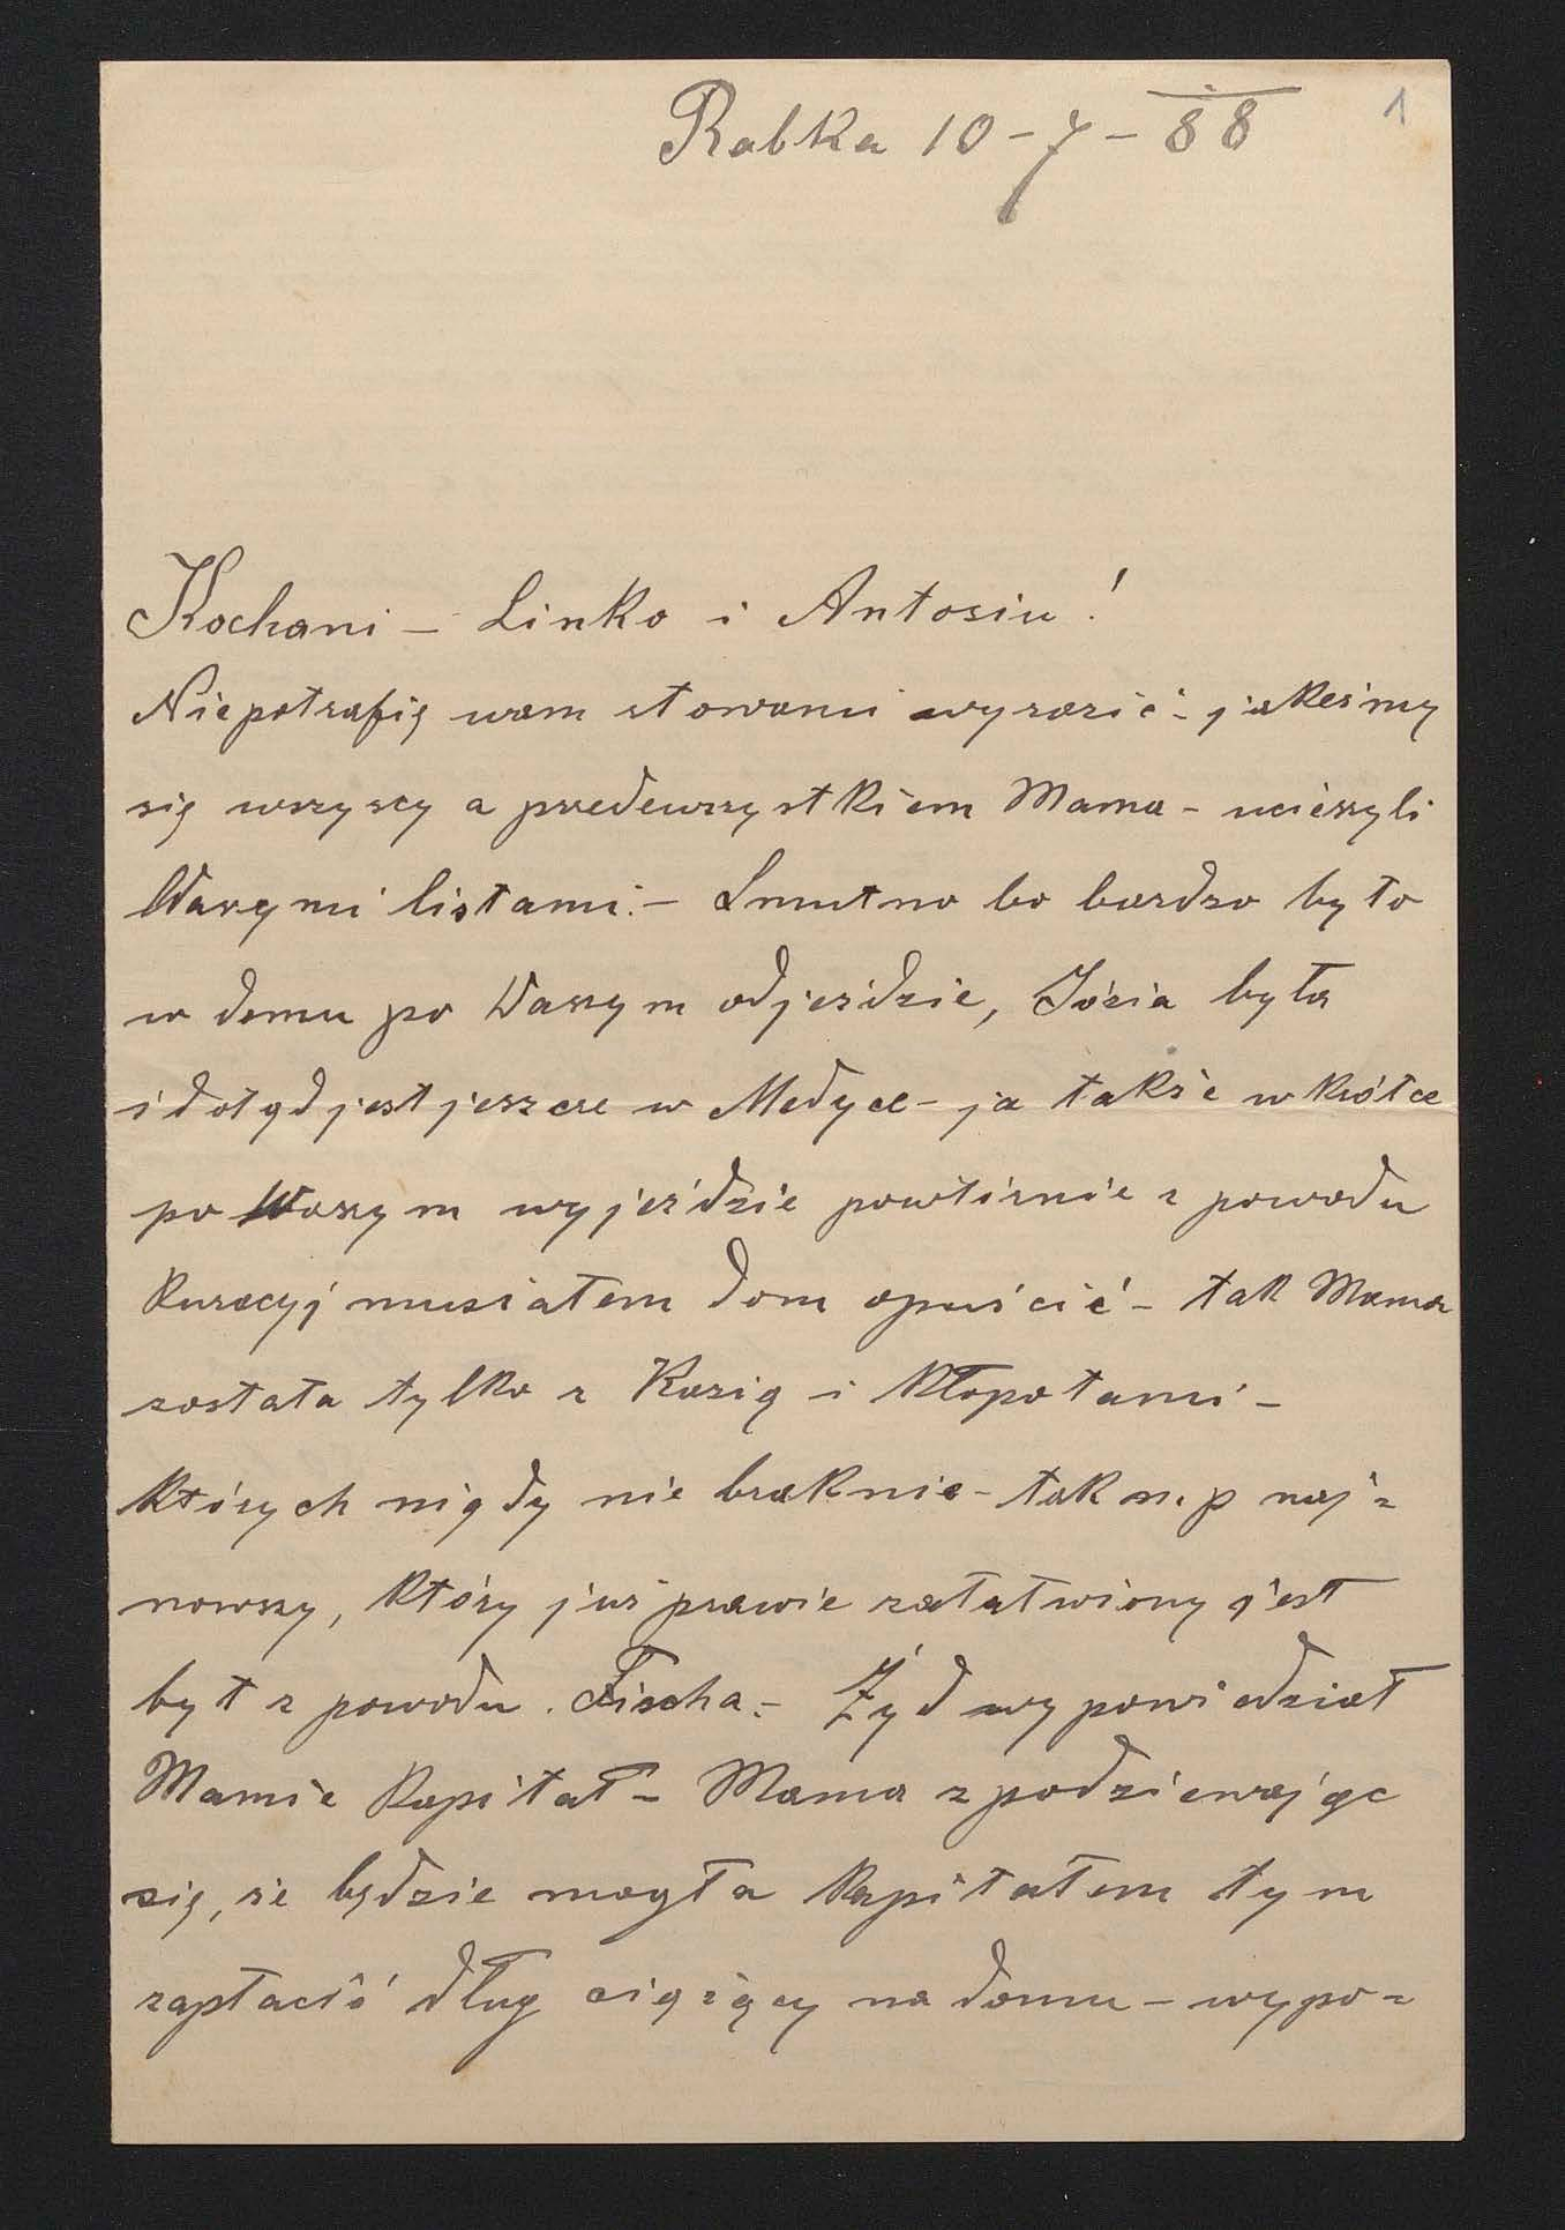 1
Rabka 10-7-88
Kochani – Linko i Antosiu!
Niepotrafię wam słowami wyrazić – jakeśmy
się wszyscy a przedewszystkiem Mama – ucieszyli
Waszymi listami. – Smutno bo bardzo było
w domu po Waszym odjeździe, Józia była
i dotąd jest jeszcze w Medyce – ja także wkrótce
po Waszym wyjeździe powtórnie z powodu
kuracyj musiałem dom opuścić – tak Mama
została tylko z Kazią i kłopotami –
których nigdy nie braknie – tak n.p naj=
nowszy, który już prawie załatwiony jest
był z powodu Fischa. – Żyd wypowiedział
Mamie kapitał – Mama zpodziewając
się, że będzie mogła kapitałem tym
zapłacić dług ciążący na domu – wypo=